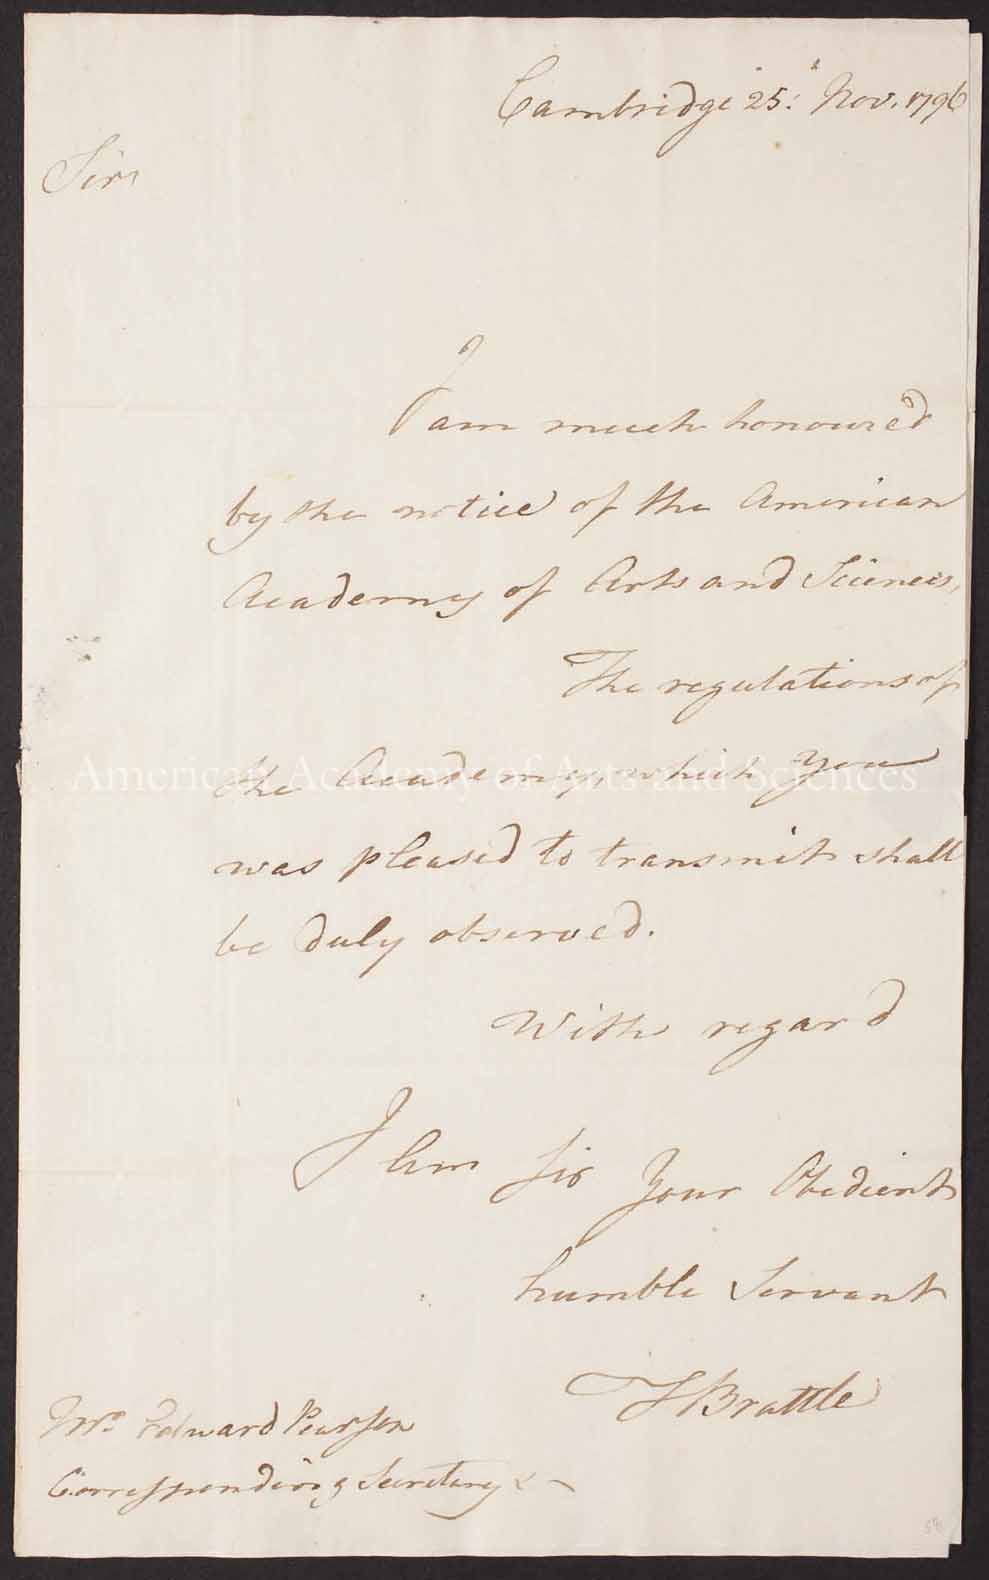 Cambridge 25. Nov. 1796
Sir
I am much honoured
by the notice of the American
Academy of Arts and Sciences,
The regulations of
the Academy, which you
was pleased to transmit shall
be duly observed.
With regard
I am Sir Your Obedient
humble Servant
T Brattle
Mr. Edward Pearson
Corresponding Secretary
American Academy of Arts and Sciences